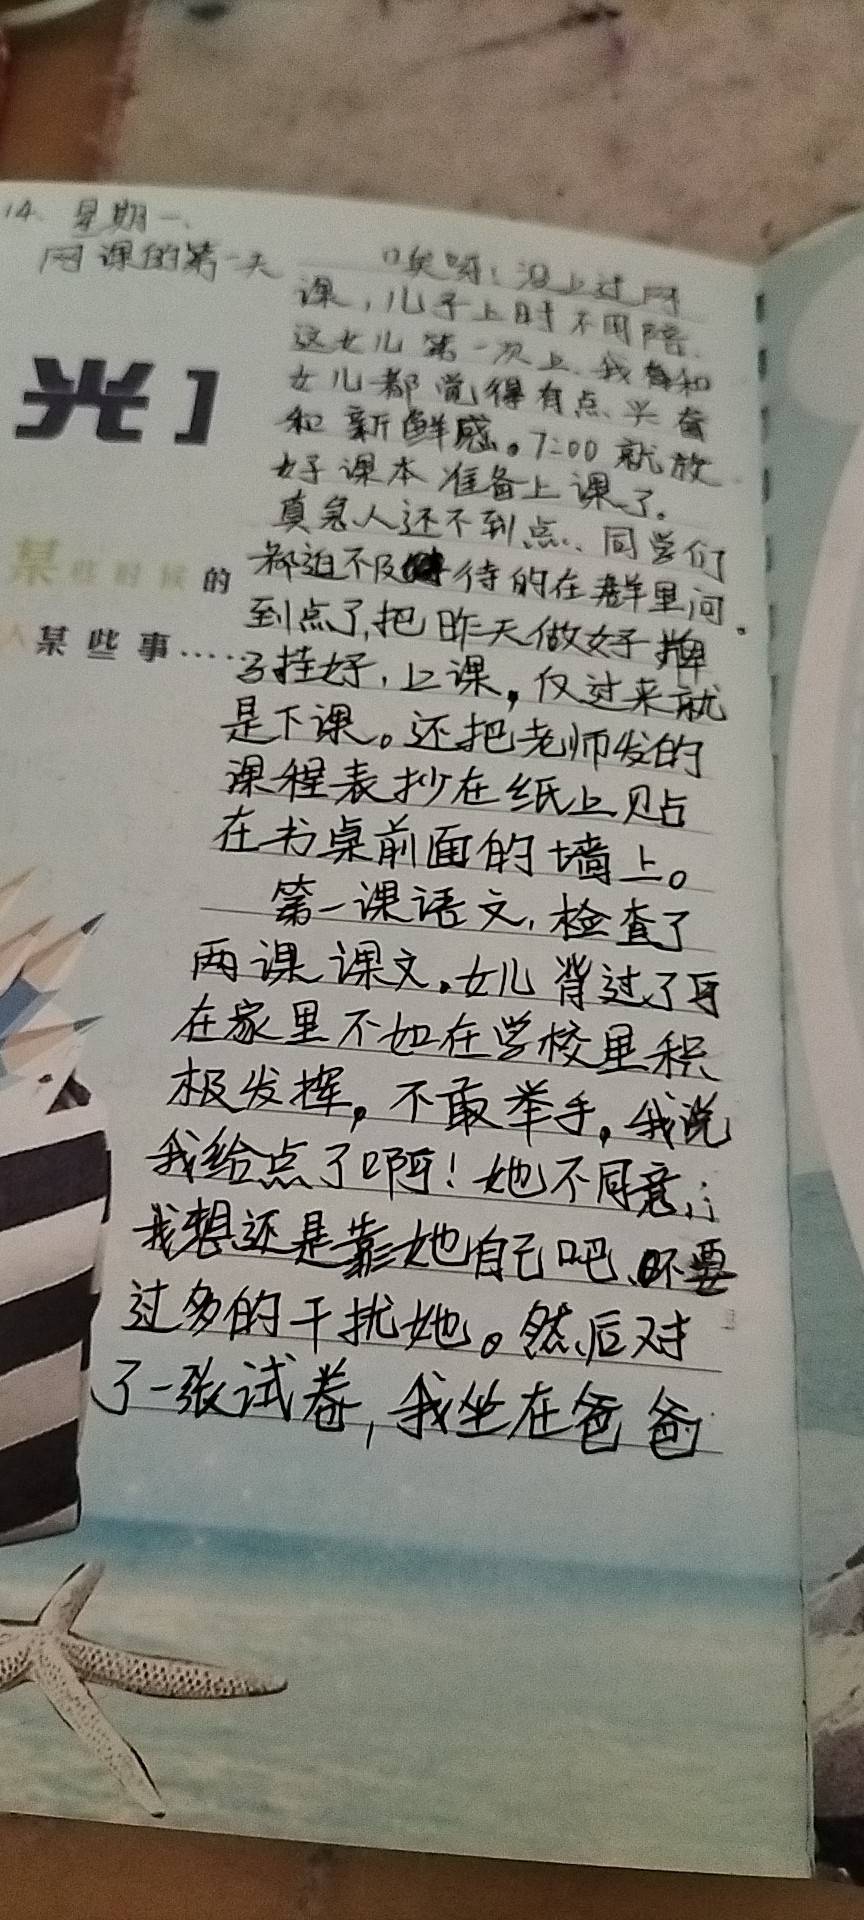 14、星期一、
网课的第一天
唉呀!没上过网
课,儿子上时不用陪、
这女儿第一次上、我和
女儿都觉得有点、兴奋
和新鲜感。7:00就放
好课本准备上课了。
真急人还不到点、同学们
都迫不及待的在群里问。
到点了,把昨天做好牌
挂好,上课,仅过来就
是下课。还把老师发的
课程表抄在纸上贴
在书桌前面的墙上。
第一课语文,检查了
两课课文。女儿背过了
在家里不如在学校里积
极发挥。不敢举手。我说
我给点了啊!她不同意,
我想还是靠她自己吧、不要
过多的干扰她。然后对
了一张试卷,我坐在爸爸
光]
某些时候的
人某些事……